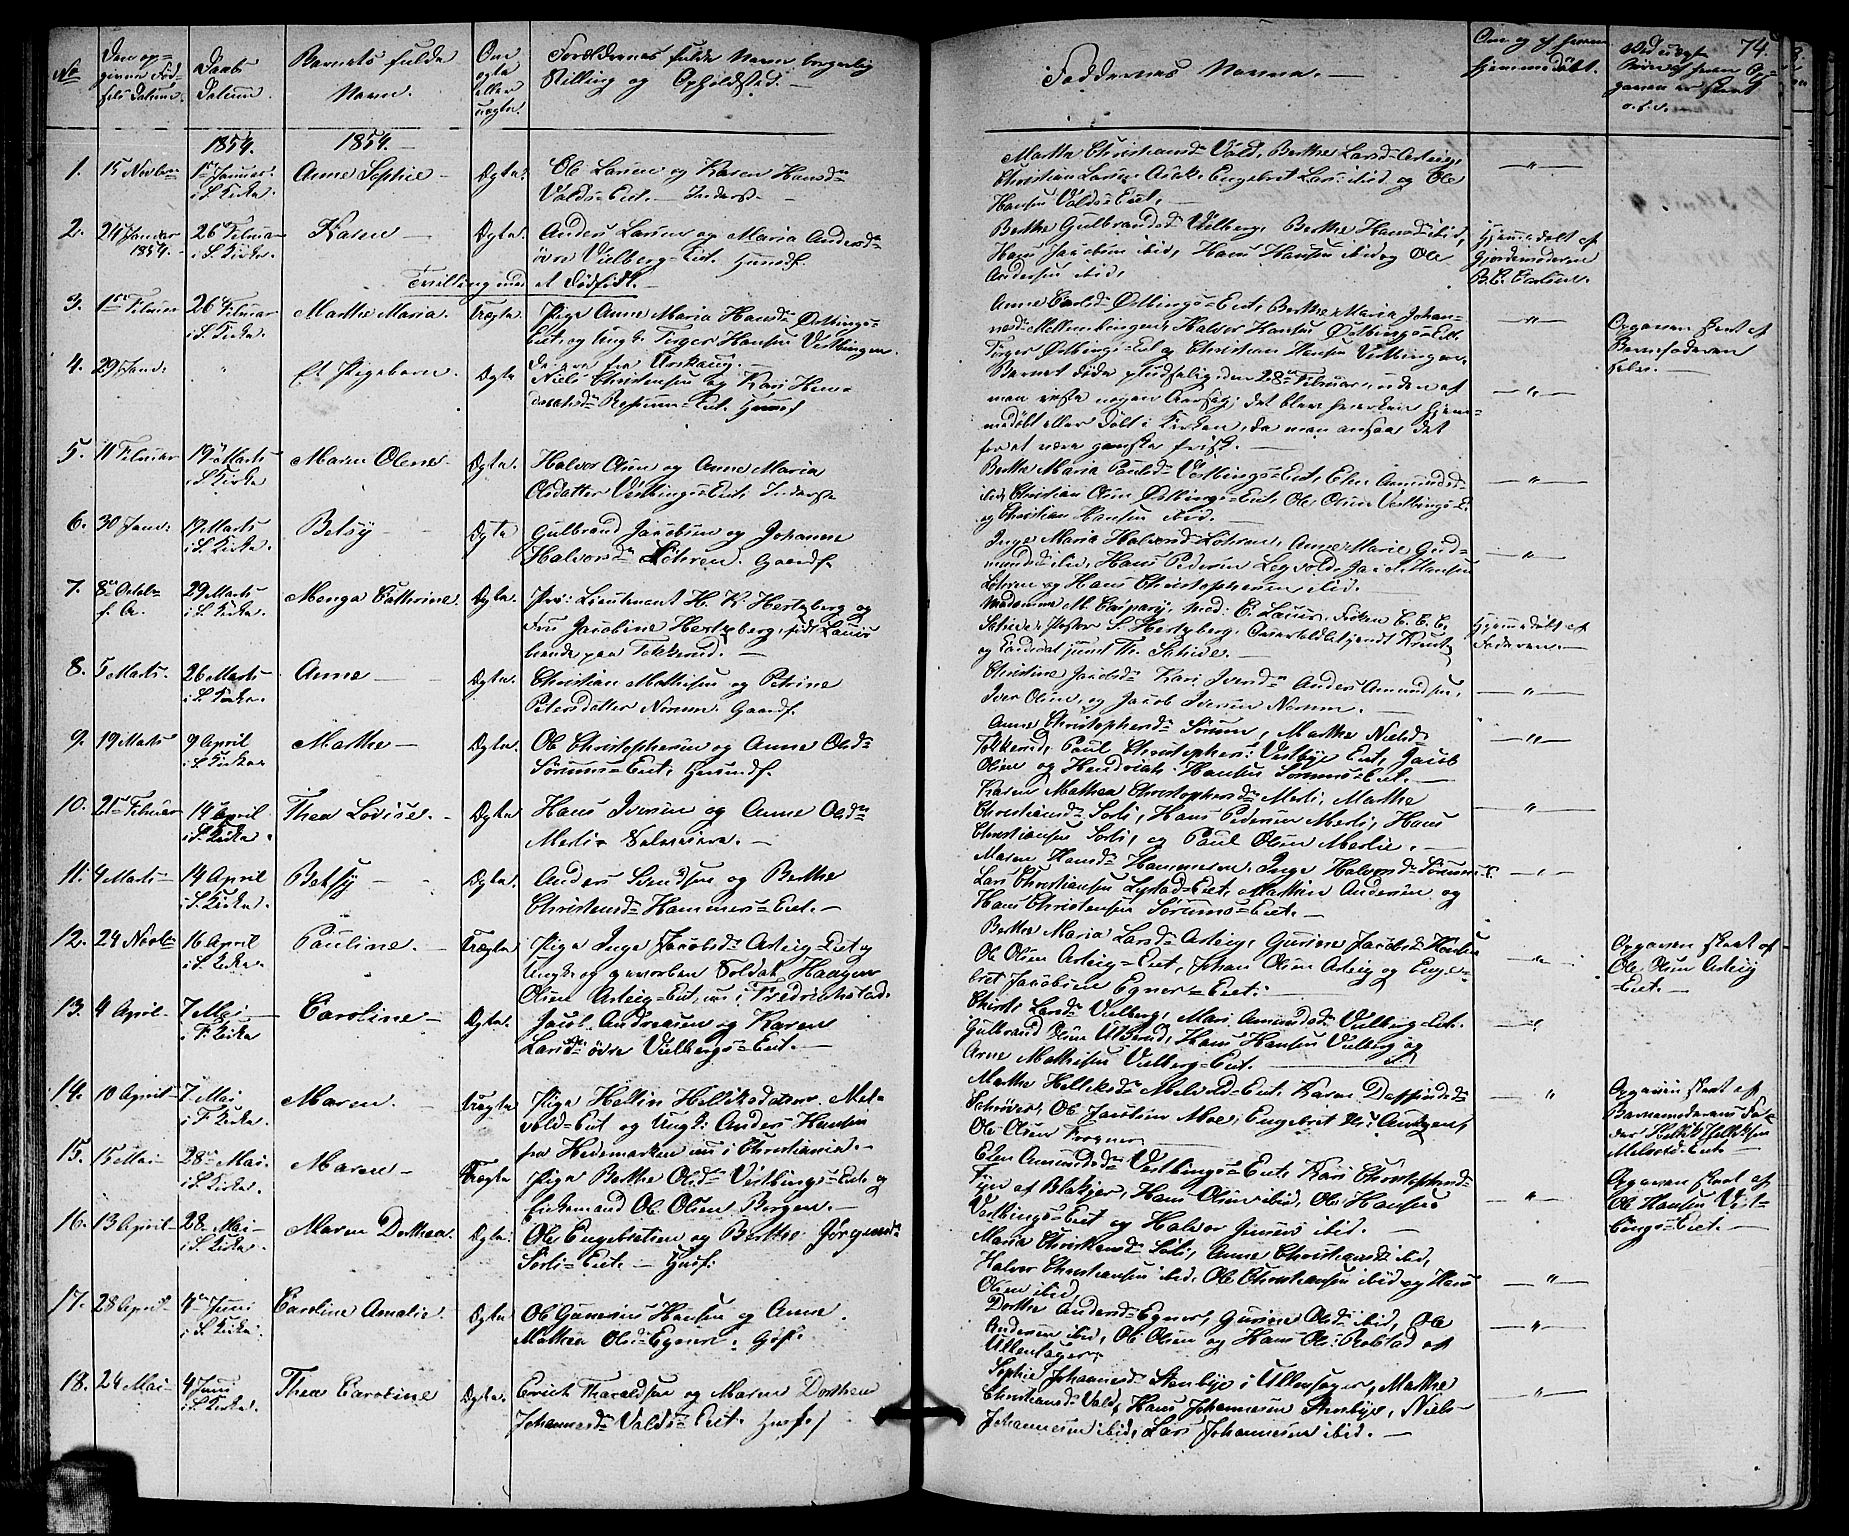 No
Den op-
givne Fød-
sels Datum.
Daabs
Datum.
Barnets fulde
Navn.
Om
ægte
eller
uægte.
Forældrenes fulde Navn borgerlig
Stilling og Opholdsted.
Faddernes Navne.
Om og af hvem
hjemmedøbt.
74.
1854. 1854.
1. 15 Novber 1ste Januar i S. Kirke. Anne Sophie Ægte. Ole Larsen og Karen Hansd
Valds-Eiet. Inderst.
Marthe Christiansd Vald, Berthe Larsd Asteig,
Christian Larsen Engebret Lars: ibid og Ole
Hansen Valds-Eiet.
2. 24 Januar 1854. 26 Februar i S. Kirke. Karen Ægte. Anders Larsen og Maria Andersd
øvre Vilberg-Eiet. Huusf.
Berthe Gulbrandsd Vilberg, Berthe Hansd ibid,
Hans Jacobsen ibid, Hans Hansen ibid og Ole
Andersen ibid,
Hjemmedøbt af
Gjordemoderen
Tvilling med et Dødfødt.
3. 1ste Februar 26 Februar i S. Kirke. Marthe Maria. Uægte. Pige Anne Maria Hansd Østbings-
Eiet, og Ungk. Torger Hansen Vestbingen.
Anne Carlsd Østbings-Eiet, Berthe Maria Johan-
nesd Mellembingen, Halvor Hansen Østbings-Eiet
Torger Østbings-Eiet og Christian Hansen Vestbingen.
Opgaven skeet af
Barnefaderen
selv.
4. 29 Janr. " Et Pigebarn. Ægte
Niels Christensen og Kari Hen-
Eiet. Huusf
Barnet døde pludselig den 28de Februar, uden at
man vidste nogen Aarsag; det blev hverken hjem-
medøbt eller døbt i Kirken, da man ansaae det
for at være ganske frisk.
5. 11 Februar 19de Marts i S Kirke Maren Olene. Ægte. Halvor Olsen og Anne Maria
Olsdatter Vestbings-Eiet, Inderste
Berthe Maria Paulsd Vestbings-Eiet, Elen Amundsd
ibid, Christian Olsen Østbings-Eiet, Ole Olsen Vestbings-E.
og Christian Hansen ibid.
6. 30 Janr. 19 Marts i S. Kirke. Betsy Ægte Gulbrand Jacobsen og Johanne
Halvorsd Løhren. Gaardf.
Inge Maria Halvorsd Løhren, Anne Marie Gud-
mundsd ibid, Hans Pedersen Hansen
Løhren og Hans Christophersen ibid.
7. 8de Octob f. A. 29 Marts i S. Kirke. Menga Cathrine. Ægte. Pr: Lieutenant H. K. Hertzberg og
Fru Jacobine Hertzberg, født Lauer
boende paa Fokkerud.
Madamme M. Caspary, Mad: C. Lauer, Frøken C. C. C.
Schive, Pastor S. Hertzberg,
og Candidat juris Th. Schive.
Hjemmedøbt af
Faderen.
8. 5 Marts. 26 Marts i S. Kirke. Anne Ægte. Christian Mathisen og Petrine
Petersdatter Norum. Gaardf.
Christine Jacobsd Kari Iversd Anders Amundsen,
Iver Olsen og Jacob Iversen Norum.
9. 19 Marts 9 April i S. Kirke. Marthe Ægte. Ole Christophersen og Anne Olsd
Sørums-Eiet, Huusmf.
Anne Christophersd Sørum, Marthe Nielsd
Fokkerud, Paul Christophers: Vestbye Eiet, Jacob
Olsen og Hendrich Hansen Sørums-Eiet.
10. 21de Februar 14 April i S. Kirke. Thea Lovise. Ægte. Hans Iversen og Anne Olsd
Merli. Selveiere.
Karen Mathea Christophersd Merli, Marthe
Christiansd Sorli, Hans Pedersen Merli, Hans
Christiansen Sorli, og Paul Olsen Merlie.
11. 4 Marts 14 April i S. Kirke. Betsy Ægte. Anders Svendsen og Berthe
Christensd Hammers-Eiet.
Maren Hansd Hammeren, Inge Halvorsd Sørums-E.
Lars Christiansen Lystad-Eiet, Martin Andersen og
Hans Christensen Sørums-Eiet.
12. 24 Novbr 16 April i S. Kirke. Pauline. Uægte. Pige Inge Jacobsd Asteig-Eiet og
Ungk. og gevorben Soldat Haagen
Olsen Asteig-Eiet, nu i Fredrichstad.
Berthe Maria Larsd Asteig, Gurine Jacobsd
Ole Olsen Asteig-Eiet, Johan Olsen Asteig og Enge-
bret Jacobsen Egner-Eiet.
Opgaven skeet af
Ole Olsen Asteig
-Eiet.
13. 4 April. 7 Mai i F. Kirke Caroline Ægte. Jacob Andreasen og Karen
Larsd øvre Vilbergs-Eiet.
Larsd Vilberg, Mari Amundsd Vilberg-Eiet.
Gulbrand Olsen Ulverud, Hans Hansen Vilberg og
Arne Mathisen Vilberg-Eiet.
14. 10 April 7 Mai i F. Kirke. Maren. Uægte Pige Hellin Helliksdatter Mel-
vold-Eiet og Ungk: Anders Hansen
fra Hedemarken nu i Christiania.
Marthe Helliksd Melvold-Eiet, Karen
Ole Jacobsen Moe, Engebret
Ole Olsen Frogner
Opgaven skeet af
Barnemoderens Fa-
der Hellik Helliksen
Melvold-Eiet
15. 15 Mai 28de Mai. i S. Kirke. Maren Uægte Pige Berthe Olsd Vestbings-Eiet og
Enkemand Ole Olsen Borgen.
Elen Amundsd Vestbings-Eiet, Kari Christophersd
af Blakjer, Hans Olsen ibid, Ole Hansen
Vestbings-Eiet og Halvor Jensen ibid.
Opgaven skeet af
Ole Hansen Vest-
bings-Eiet.
16. 13 April 28 Mai i S. Kirke. Maren Dorthea. Ægte. Ole Engebretsen og Berthe Jørgensd
Sorli-Eiet. Husf.
Maria Christiansd Sorli, Anne Christiansd ibid,
Halvor Christiansen ibid, Ole Christiansen ibid og Hans
Olsen ibid,
17. 28 April 4de Juni i S. Kirke. Caroline Amalie. Ægte Ole Gunerius Hansen og Anne
Mathea Olsd Egner.
Dorthe Andersd Egner, Gurine Olsd ibid, Ole
Andersen ibid, Ole Olsen og Hans Ols: Robstad af
Ullensager.
18. 24 Mai 4 Juni i S. Kirke. Thea Caroline Ægte. Erich Tharaldsen og Maren Dorthea
Johannesd Valds-Eiet. Husf.
Sophie Johannesd Stenbye i Ullensager, Marthe
Christiansd Vald, Hans Johannesen Stenbye, Niels
Johannesen ibid, Lars Johannesen ibid.